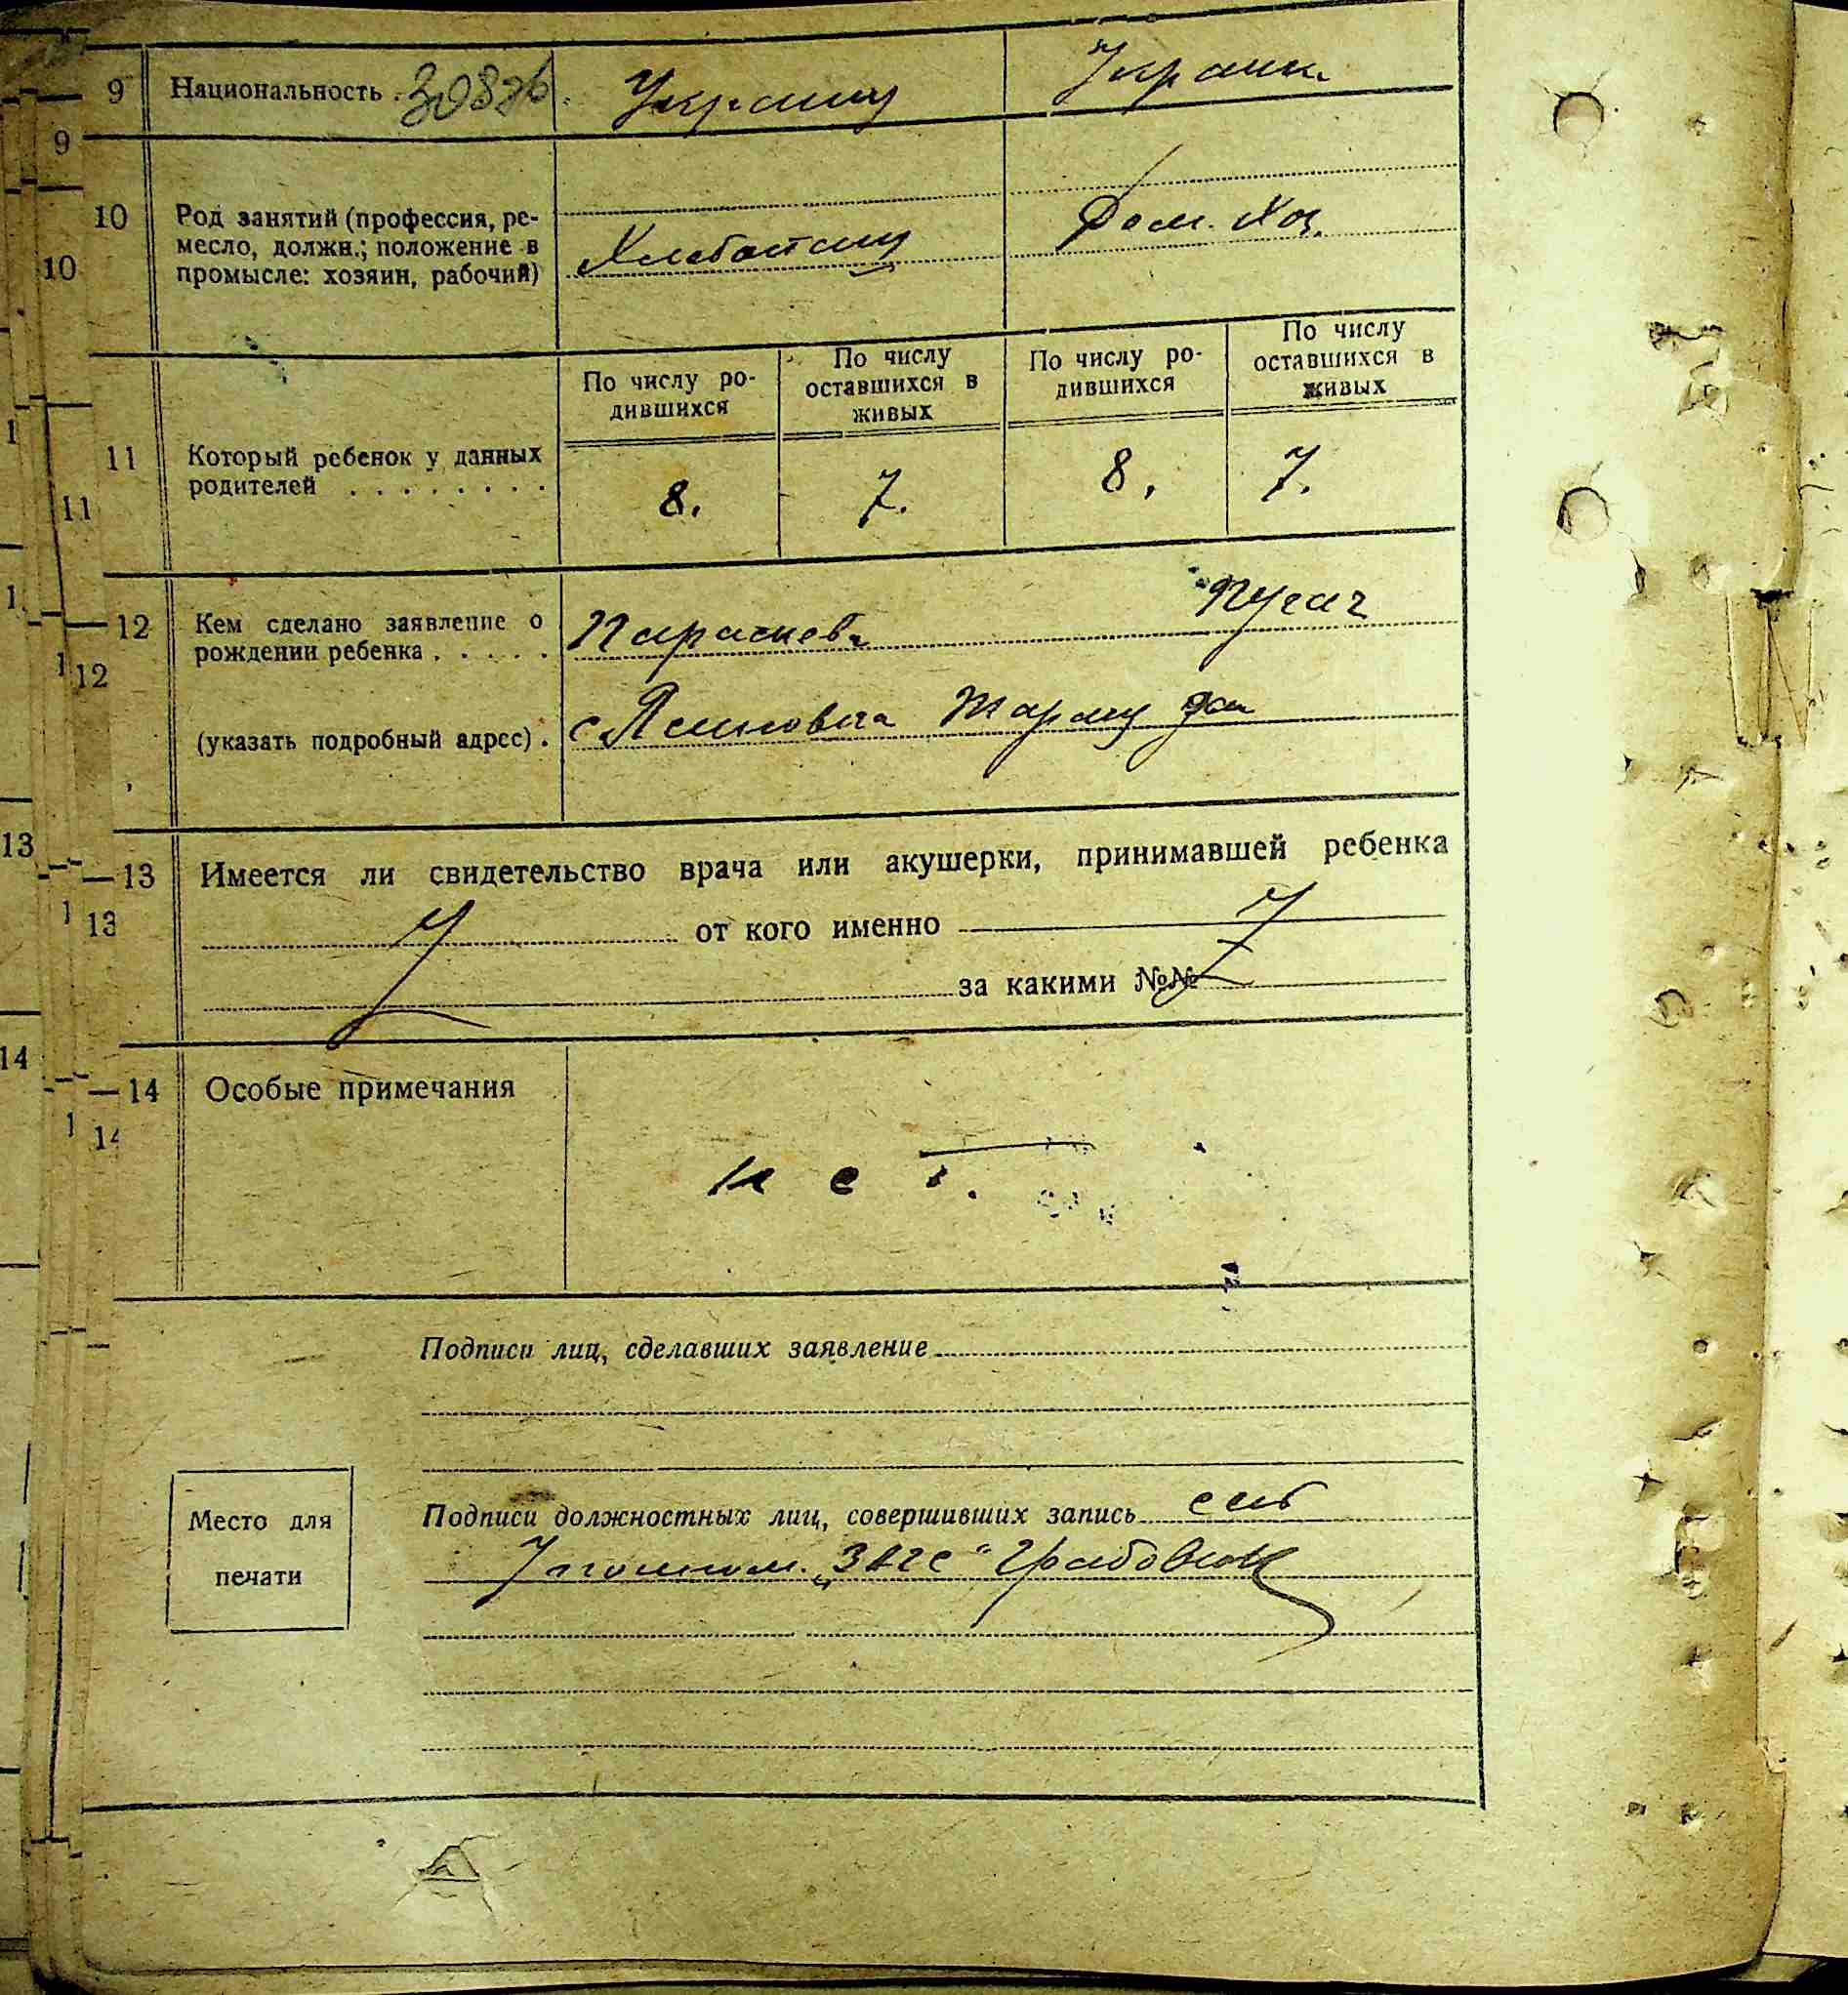 9 Национальность . Украин Украин.
10 Род занятий (профессия, ре-
месло, должн.; положение в
промысле: хозяин, рабочий)
Дом. Хоз.
11 Который ребенок у данных
родителей . . . . . . . .
По числу ро-
дившихся
По числу
оставшихся в
живых
По числу ро-
дившихся
По числу
оставшихся в
живых
8. 7. 8. 7.
12 Кем сделано заявление о
рождении ребенка . . . . .
Параскева Пугач
(указать подробный адрес) .
13 Имеется ли свидетельство врача или акушерки, принимавшей ребенка
от кого именно
за какими №№
14 Особые примечания
нет.
Подписи лиц, сделавших заявление
Место для
печати
Подписи должностных лиц, совершивших запись
"ЗАГС"
9
10
11
12
13
14